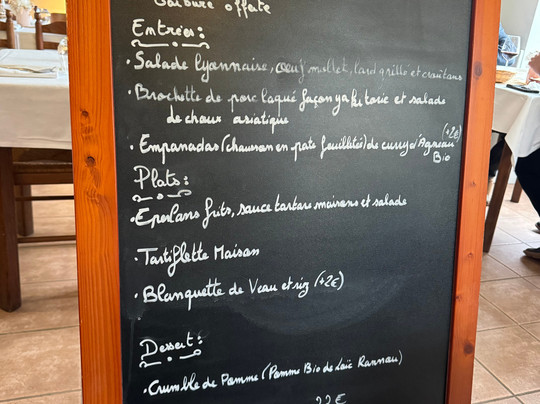 Garbure offerte
Entrées:
• Salade lyonnaise, oeuf mollet, lard grillé et croutons
• Brochette de porc laqué façon yakitorie et salade
de choux asiatique
• Empanadas (chausson en pate feuilleté) de curry d'Agneau (+2€)
Bio
Plats:
• Eperlans frits, sauce tartare maisons et salade
• Tartiflette Maison
• Blanquette de Veau et riz (+2€)
Dessert:
• Crumble de Pomme (Pomme Bio de Loïc Rannou)
22 €